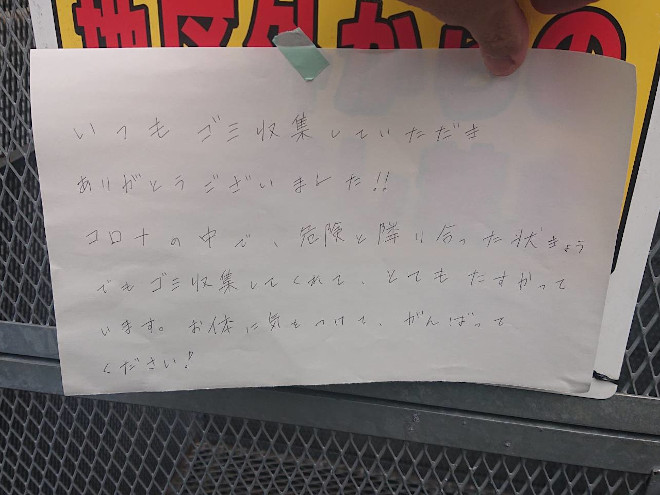 地区外からの
いつもゴミ収集していただき
ありがとうございました!!
コロナの中で、危険と隣り合った状きょう
でもゴミ収集してくれて、とてもたすかって
います。お体に気をつけて、がんばって
ください!